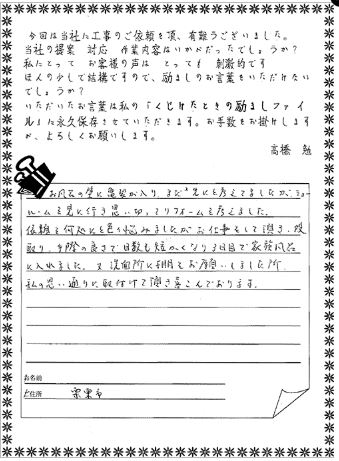 今回は当社に工事のご依頼を頂、有難うございました。
当社の提案 対応 作業内容はいかがだったでしょうか?
私にとって お客様の声は とっても 刺激的です
ほんの少しで結構ですので、励ましのお言葉をいただけない
でしょうか?
いただいたお言葉は私の「くじけたときの励ましファイ
ル」に永久保存させていただきます。お手数をお掛けします
が、よろしくお願いします。
高橋 勉
お風呂の壁に亀裂が入り、まだ先にと考えてましたがショー
ルームを見に行き思い切ってリフォームを考えました。
依頼を何処にと色々悩みましたがお仕事をして頂き、段
取り、手際の良さで日数も短かくなり3日目で家族風呂
に入れました。又洗面所に棚をお願いしました所、
私の思い通りに取付けて頂き喜こんでおります。
お名前
ご住所 宗栗市